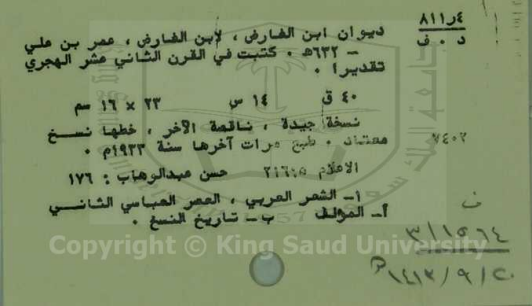 ٨١١٫٤
د ٠ ف
ديوان ابن الفارض ، لابن الفارض ، عمر بن علي
– ٦٣٢هـ ٠ كتبت في القرن الثاني عشر الهجري
تقديرا ٠
٤٠ ق ١٤ س ٢٣ × ١٦ سم
نسخة جيدة ، ناقصة الآخر ، خطها نسخ
معتاد ٠ طبع مرات آخرها سنة ١٩٣٣م ٠
٧٤٠٢
الاعلام ٥ : ٢١٦ حسن عبدالوهاب : ١٧٦
أ– الشعر العربي ، العصر العباسي الثاني
أ– المؤلف ب– تاريخ النسخ ٠
ف
٣/١٥٦٤
١٤١٣/٩/٢٠هـ
Copyright © King Saud University